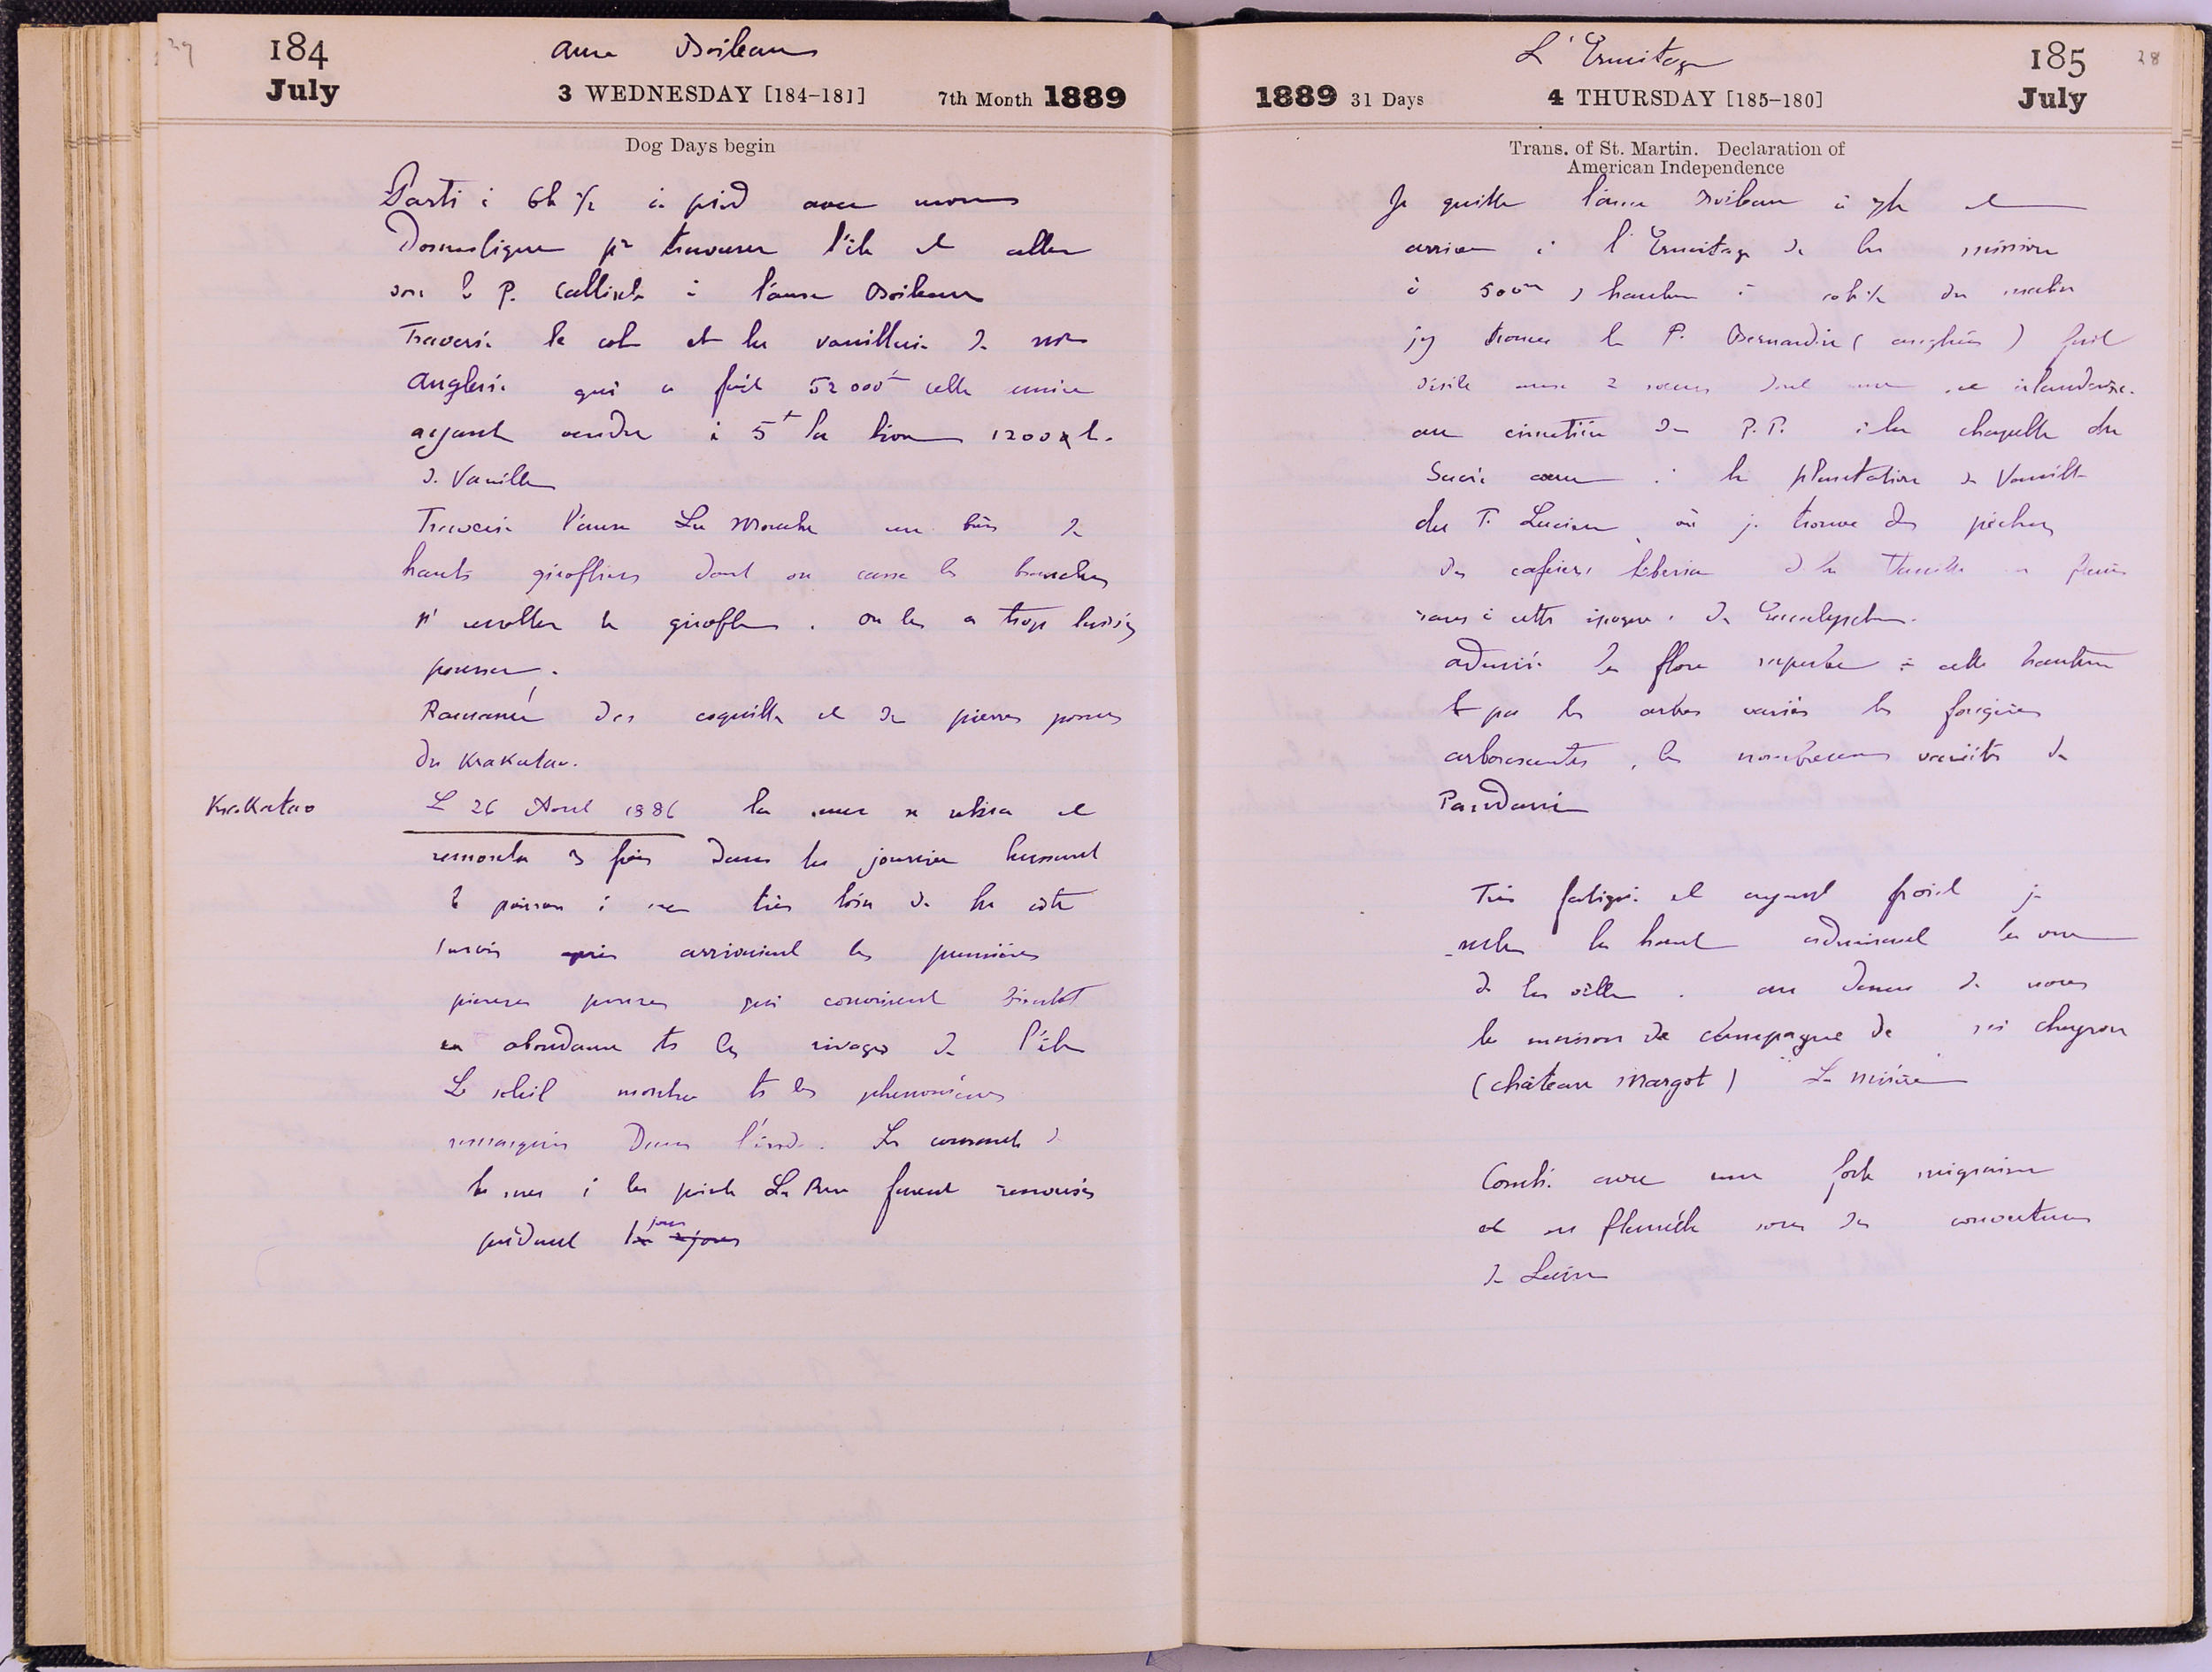 184
July
Anse Boileau
3 WEDNESDAY [184-181]
7th Month 1889
Dog Days begin
Parti à 6h ½ à pied avec mon
Domestique pr traverser l'île et aller
voir le P. Callixte à l'anse Boileau
Traversé le col et la vanillerie de
Anglerie qui a fait 52000 cette année
ayant vendu à 5 la livre 1200 l.
de Vanille
Traversé l'anse La Mouche un bois de
hauts girofliers dont on casse les branches
pr récolter le girofle. on les a trop laissés
pousser.
Ramassé des coquilles et des pierres ponces
du Krakatau.
Krakatao
Le 26 Aout 1886 la mer se retira et
remonta 3 fois dans la journée laissant
le poisson à sec très loin de la côte
après arrivaient les premières
pierres ponces qui couvrirent bientôt
en abondance ts les rivages de l'île
Le soleil montra ts les phenomènes
remarqués Dans l'inde. Les courants de
la mer à la pointe La Rue furent renversés
pendant jours
28
185
July
L'Ermitage
1889 31 Days
4 THURSDAY [185-180]
Trans. of St. Martin. Declaration of
American Independence
Je quitte l'anse Boileau à 7h et
arrive à l'Ermitage de la mission
à 500m de hauteur à du matin
j'y trouve le P. Bernardin (anglais) fait
visite aux 2 soeurs dont une est irlandaise.
au cimetière des P.P. à la chapelle du
Sacré coeur à la plantation de Vanille
du P. Lucien où je trouve des pêchers
des cafeiers liberia de la Vanille en fleurs
rares à cette époque. des Eucalyptus.
admiré la flore superbe à cette hauteur
et par les arbres variés les fougères
arborescentes, les nombreuses variétés de
Pandani
Très fatigué et ayant froid je
reste là haut admirant la vue
de la ville. au dessus de nous
la maison de campagne de chayron
(château Margot) La misère
Couché avec une forte migraine
et en flanelle sous des couvertures
de Laine